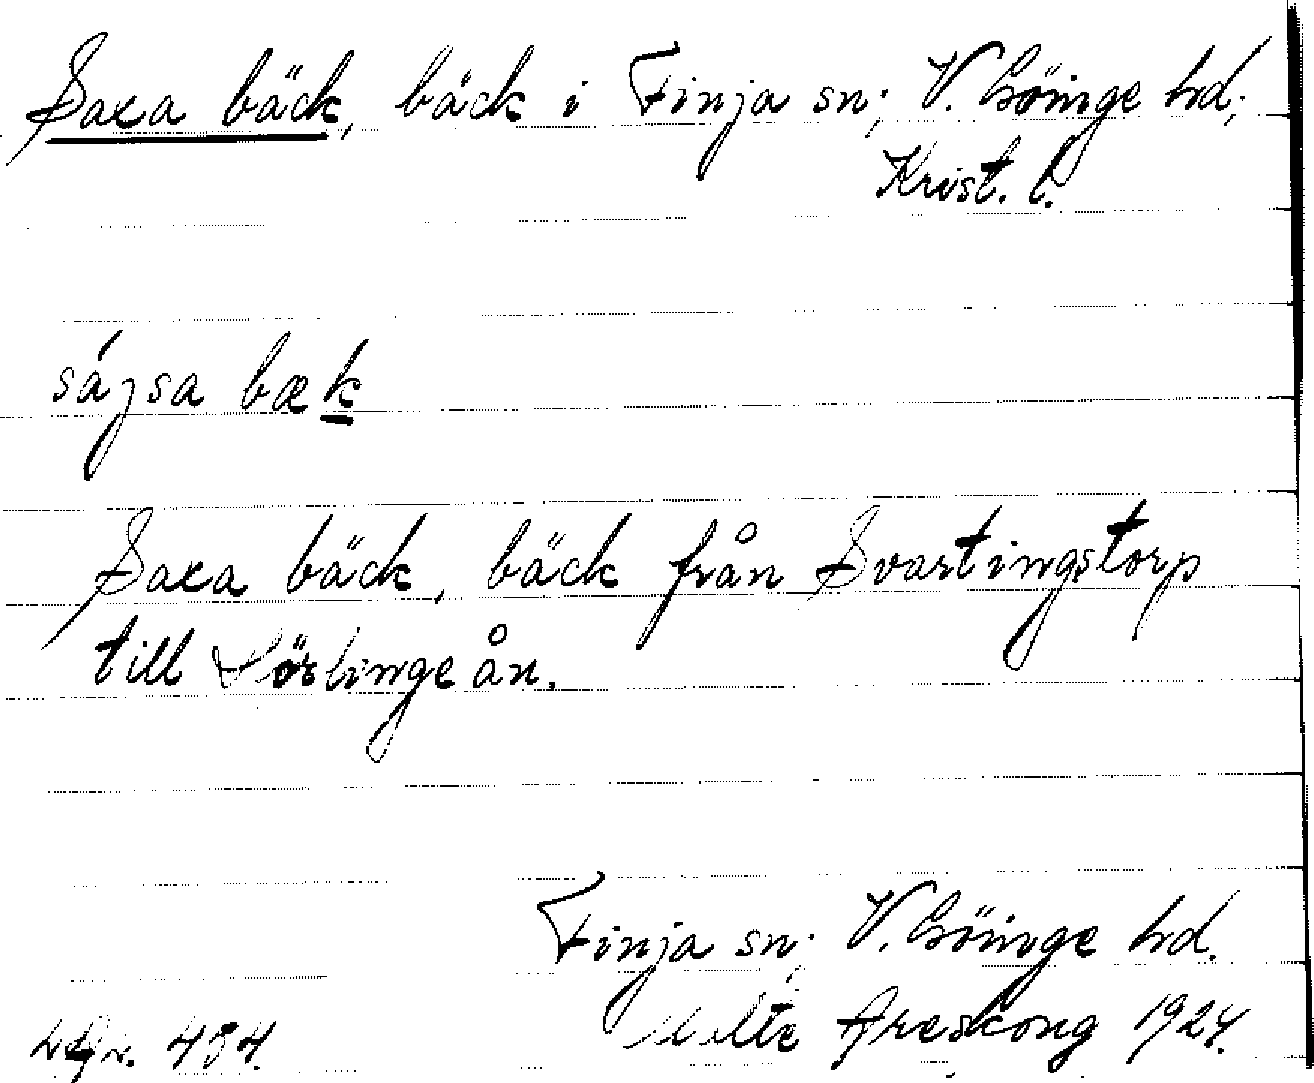 Saxa bäck, bäck i Finja sn; V. Göinge hd;
Krist. l.
sáʒsa bæk
Saxa bäck, bäck från Svartingstorp
till Hörlinge ån.
Finja sn; V. Göinge hd.
Malte Areskoug 1924.
484.